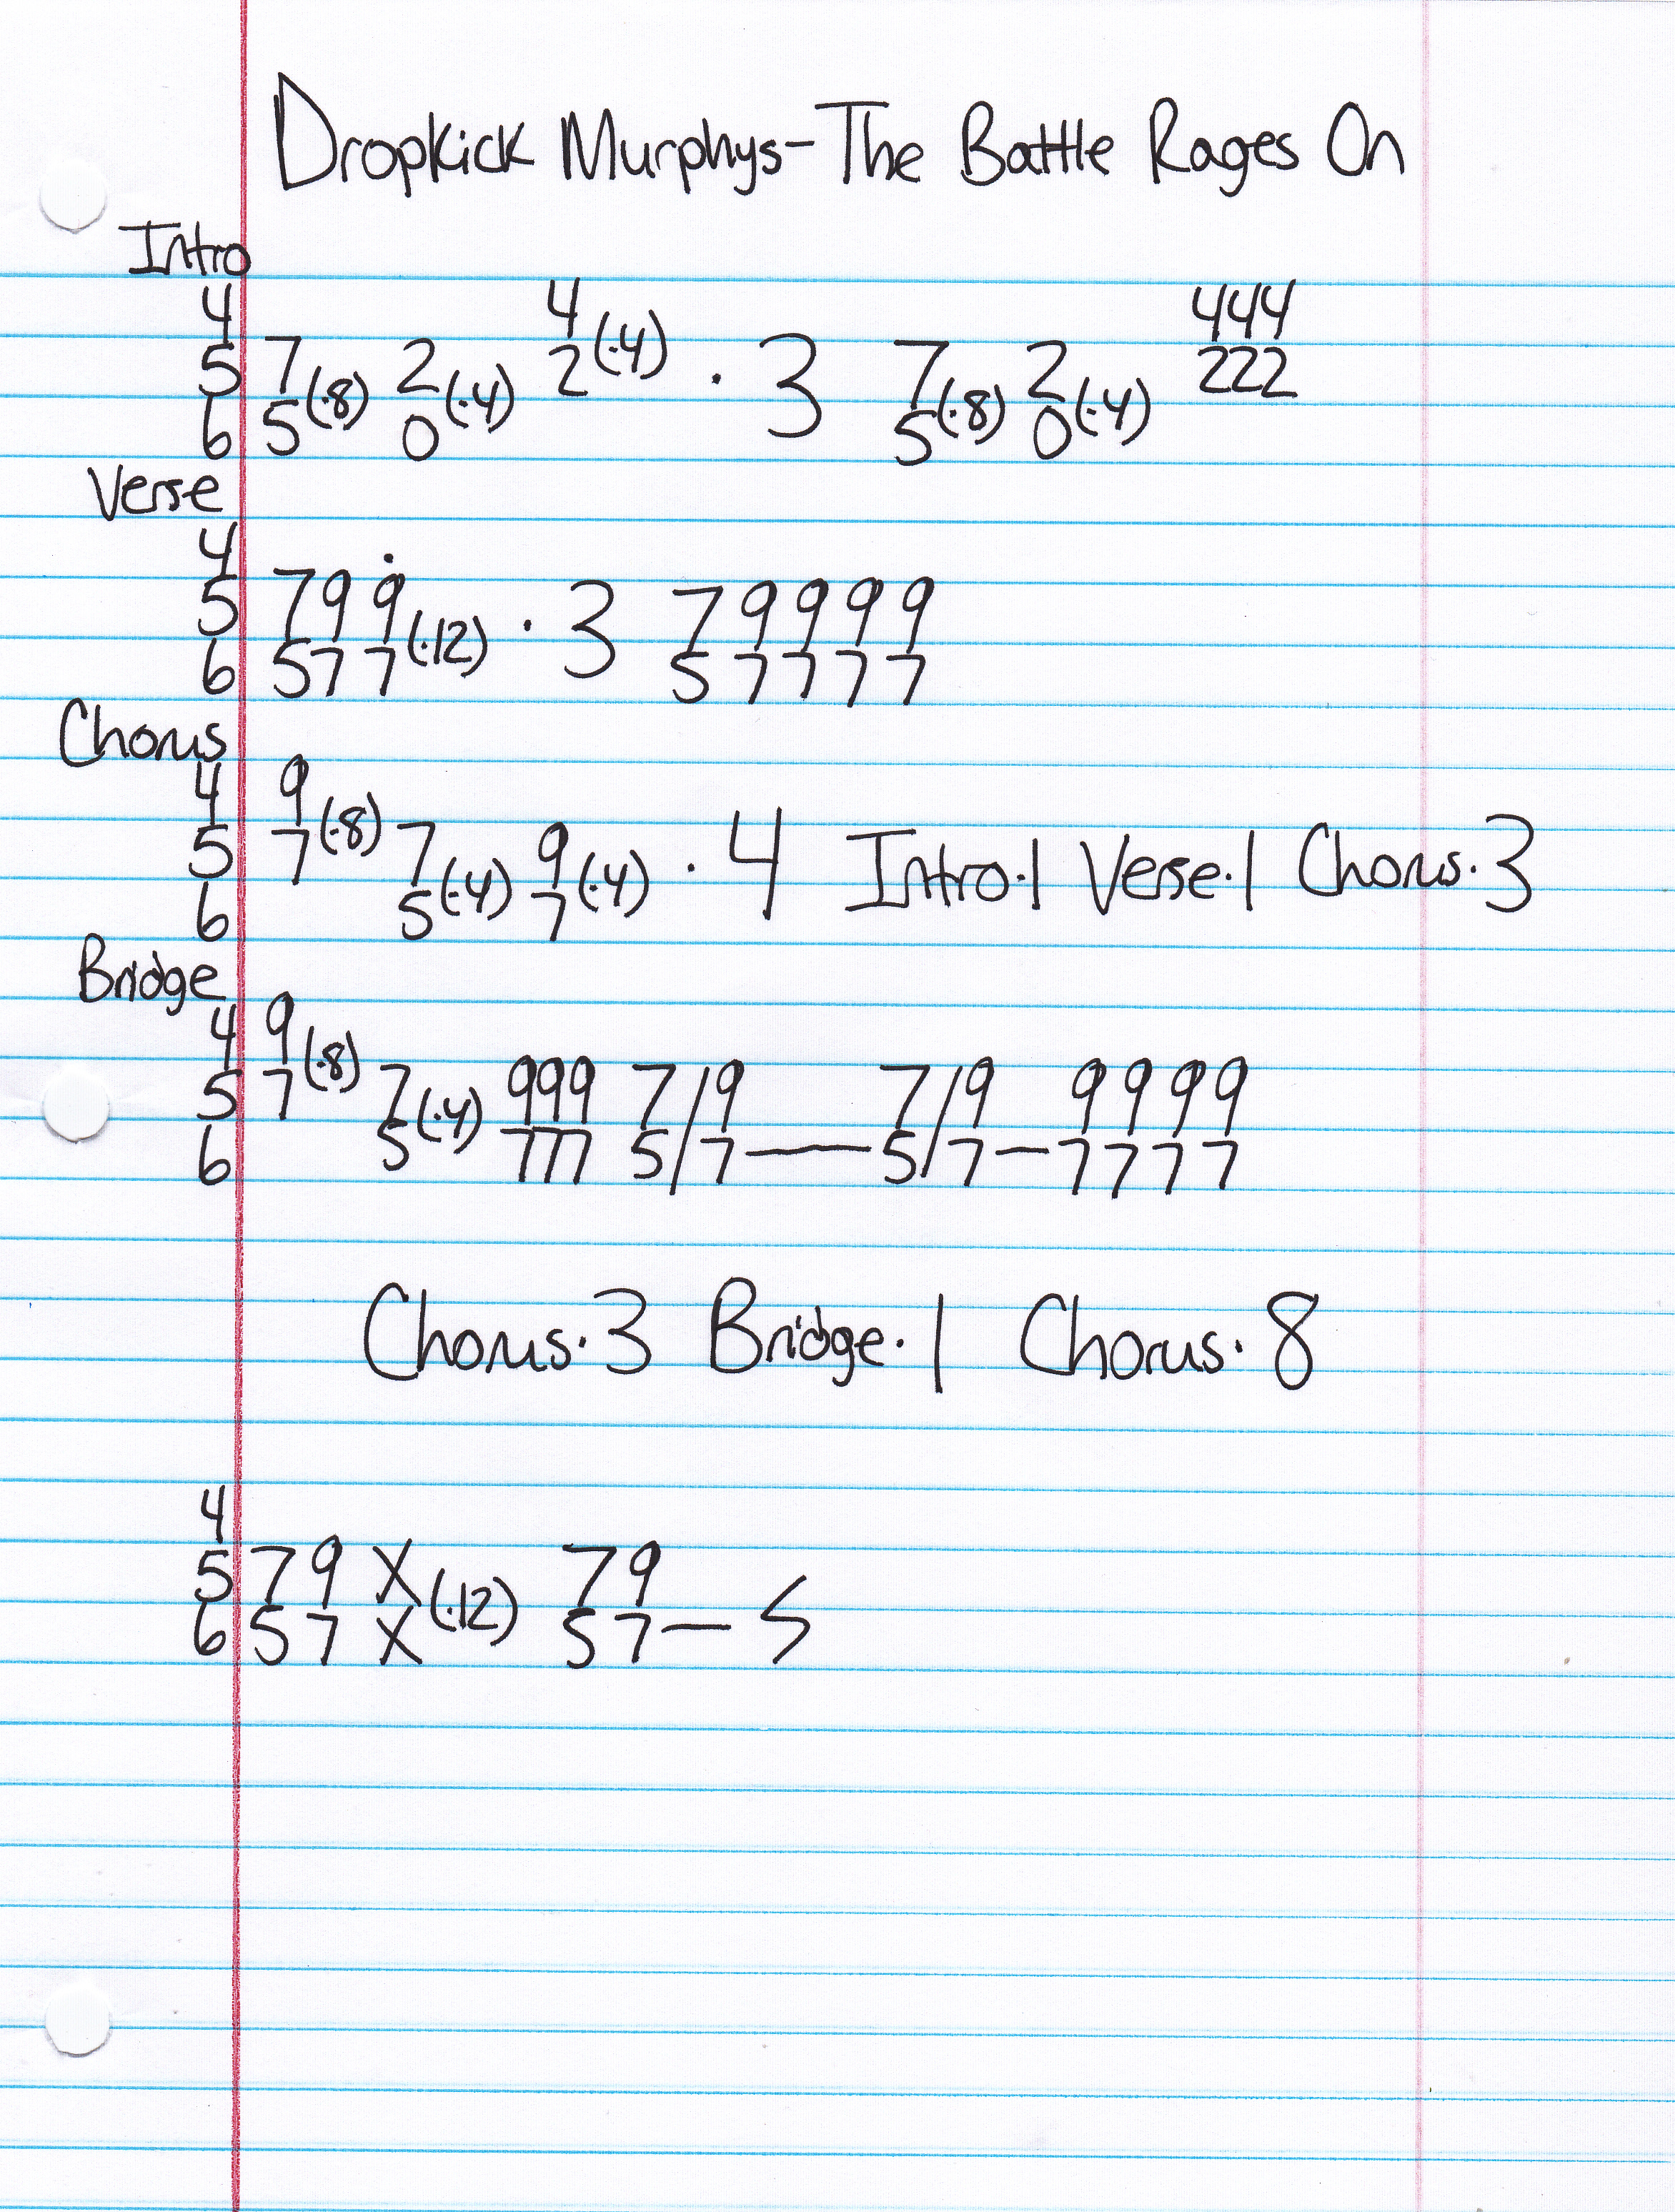 Dropkick Murphys-The Battle Rages On
Intro
4 4(·4) 444
5 7(·8) 2(·4) 2 · 3 7(·8) 2(·4) 222
6 5 0 5 0
Verse
4
5 7 9 9̇(·12) · 3 7 9 9 9 9
6 5 7 7 5 7 7 7 7
Chorus
4 9
5 7(·8) 7(·4) 9(·4) · 4 Intro·1 Verse·1 Chorus·3
6 5 7
Bridge
4 9
5 7(·8) 7(·4) 999 7/9 7/9 9 9 9 9
6 5 777 5/7—5/7–7 7 7 7
Chorus·3 Bridge·1 Chorus·8
4
5 7 9 X(·12) 7 9
6 5 7 X 5 7 – S